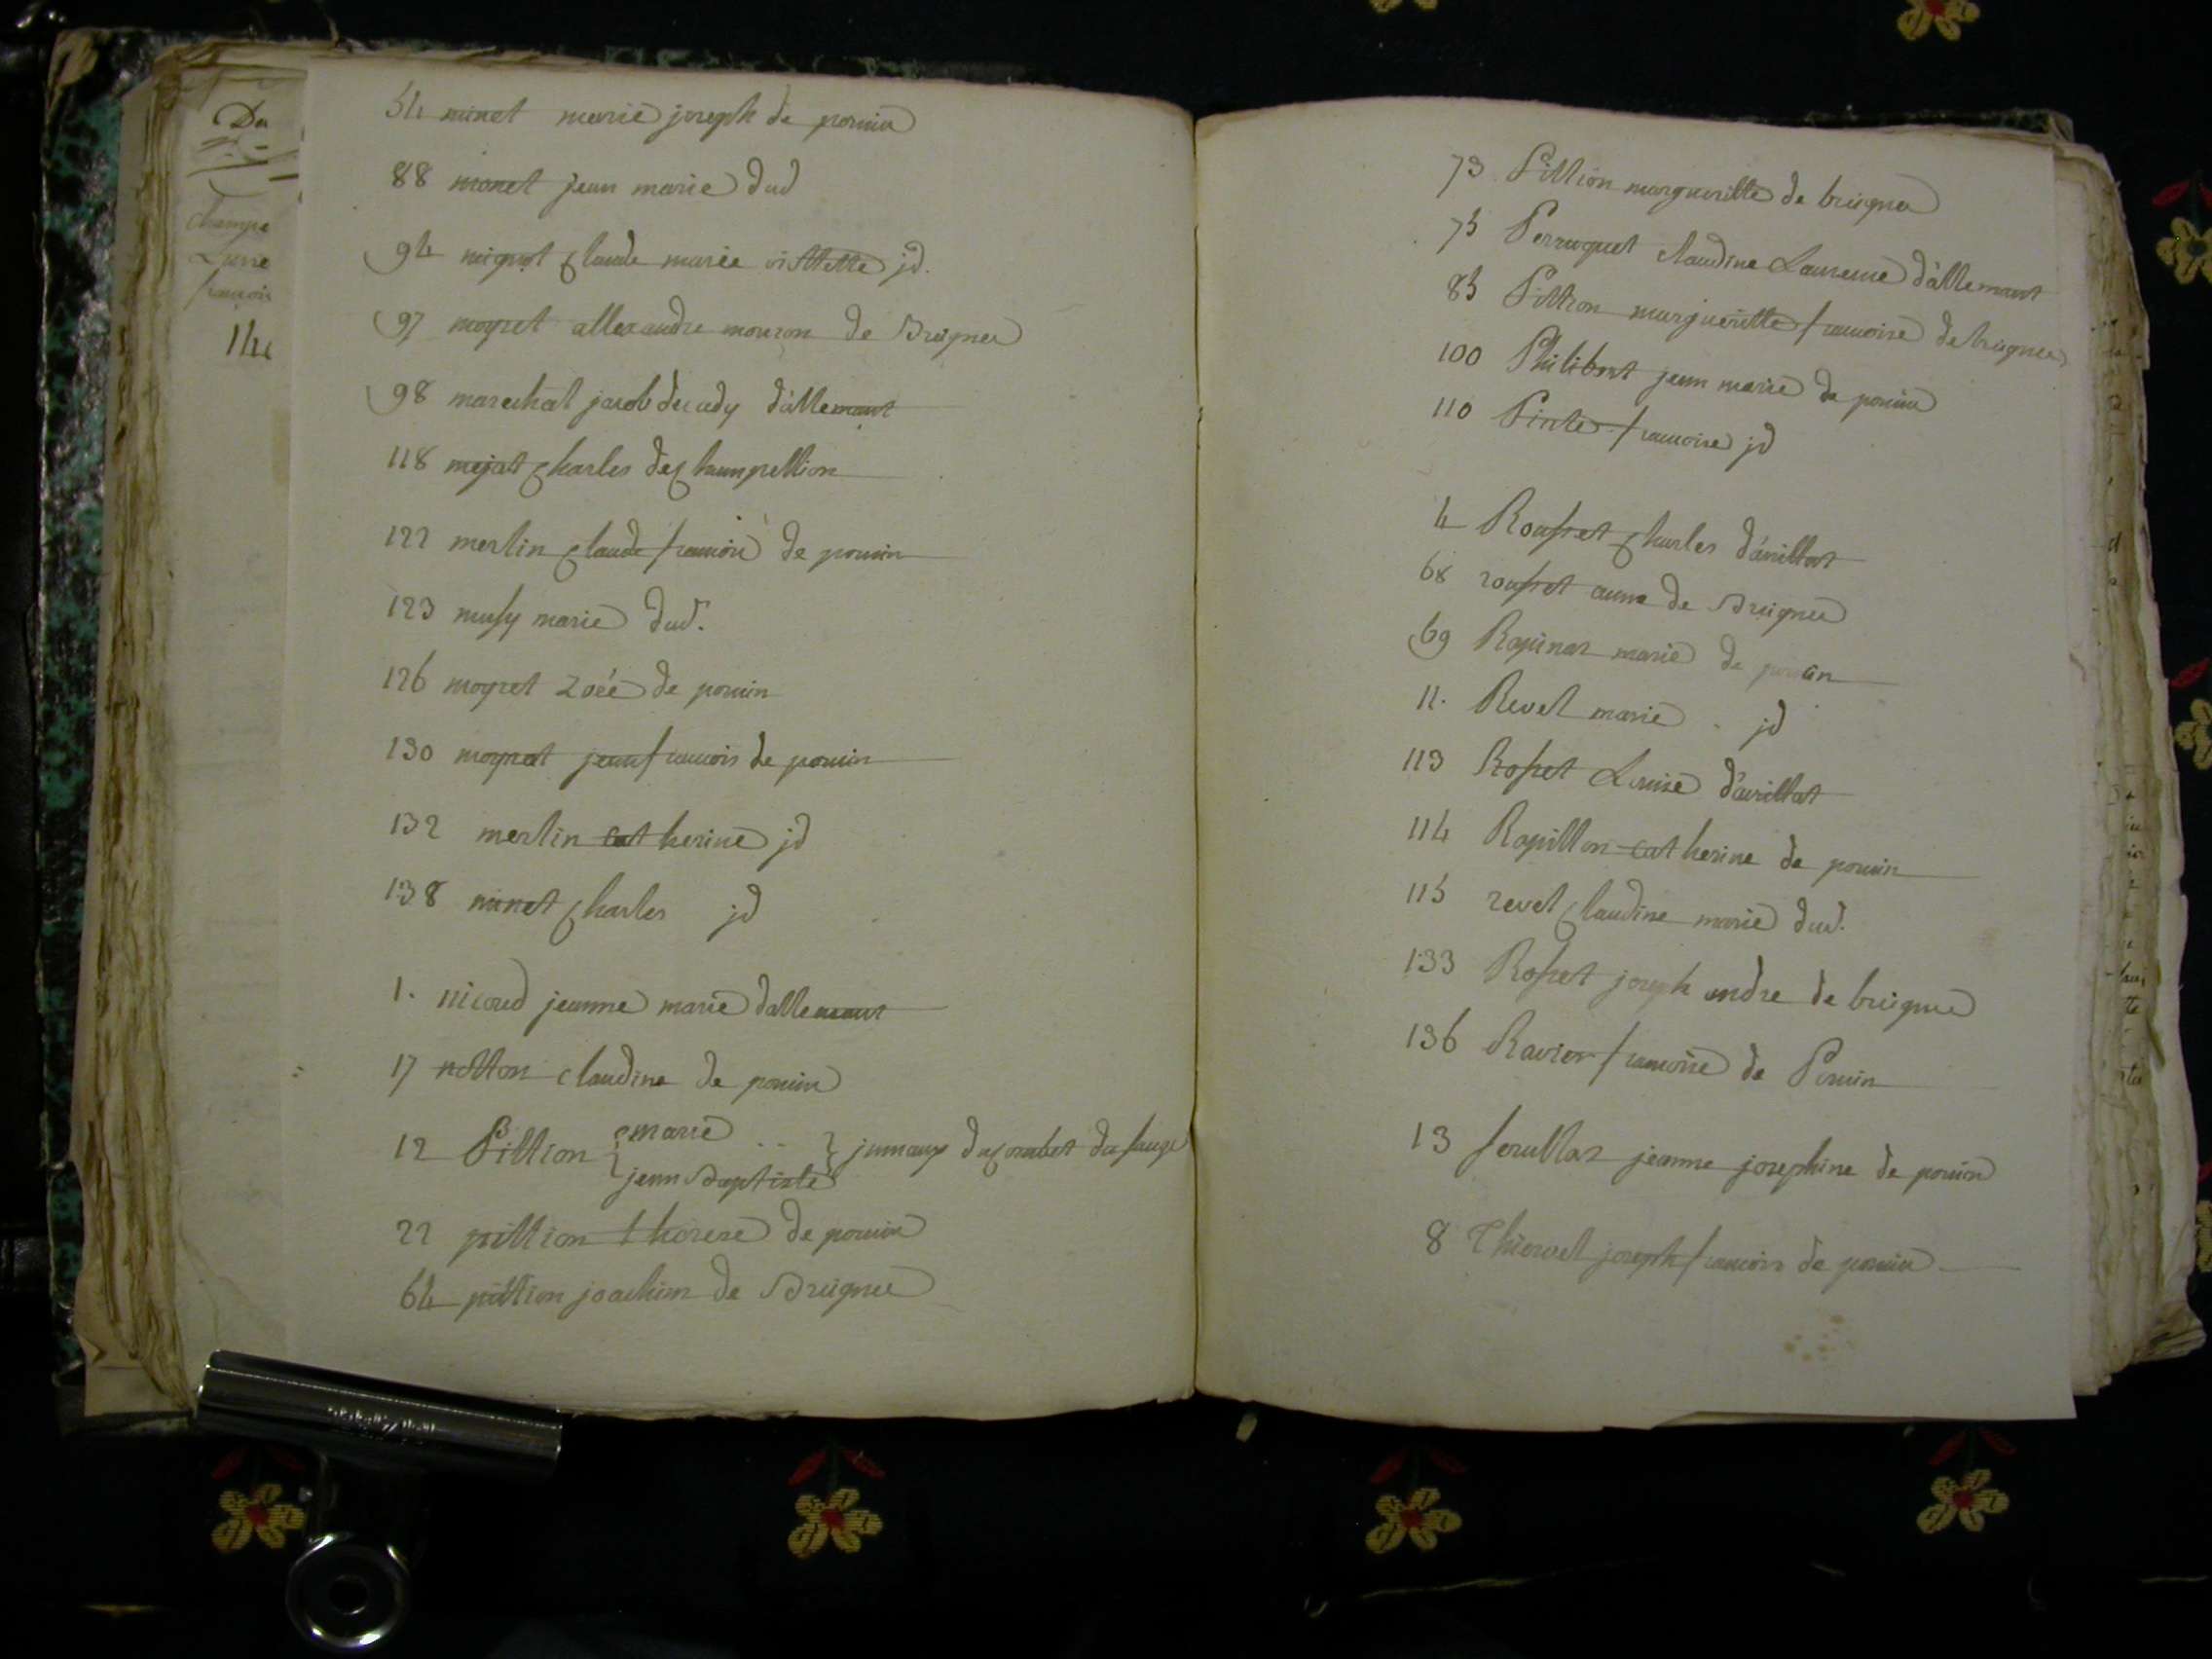 Du
Champe
Lune
francois
144
54 minet marie joseph de poncin
88 monet jean marie dud
94 mignot Claude marie jd.
97 moyret allexandre mouron de Breignea
98 marechal jacob decady d'allemant
118 mejat Charles de Champellion
122 merlin Claude francois de poncin
123 musy marie dud.
126 moyret Zoée de poncin
130 moyret jean francois de poncin
132 merlin catherine jd
138 minet Charles jd
1. nicoud jeanne marie dallemant
17 notton claudine de poncin
12 Pittion { marie .. } jumaux du Combet du sauge
jean Baptiste
22 pittion therese de poncin
64 pittion joachim de Breignea
73 Pittion margueritte de breignea
75 Perruquet claudine Laurence d'allemant
85 Pittion margueritte francoise de breignea
100 Philibert jean marie de poncin
110 Pinte francoise jd
4 Rousset Charles d'avrillat
68 rousset anne de Breignea
69 Rapinar marie de poncin
11. Revel marie . jd
113 Rosset Louise d'avrillat
114 Rapillon catherine de poncin
115 revel Claudine marie dud.
133 Rosset joseph andre de breignea
136 Ravier francoise de Poncin
13 Serullar jeanne josephine de poncin
8 Thiervet joseph francois de poncin